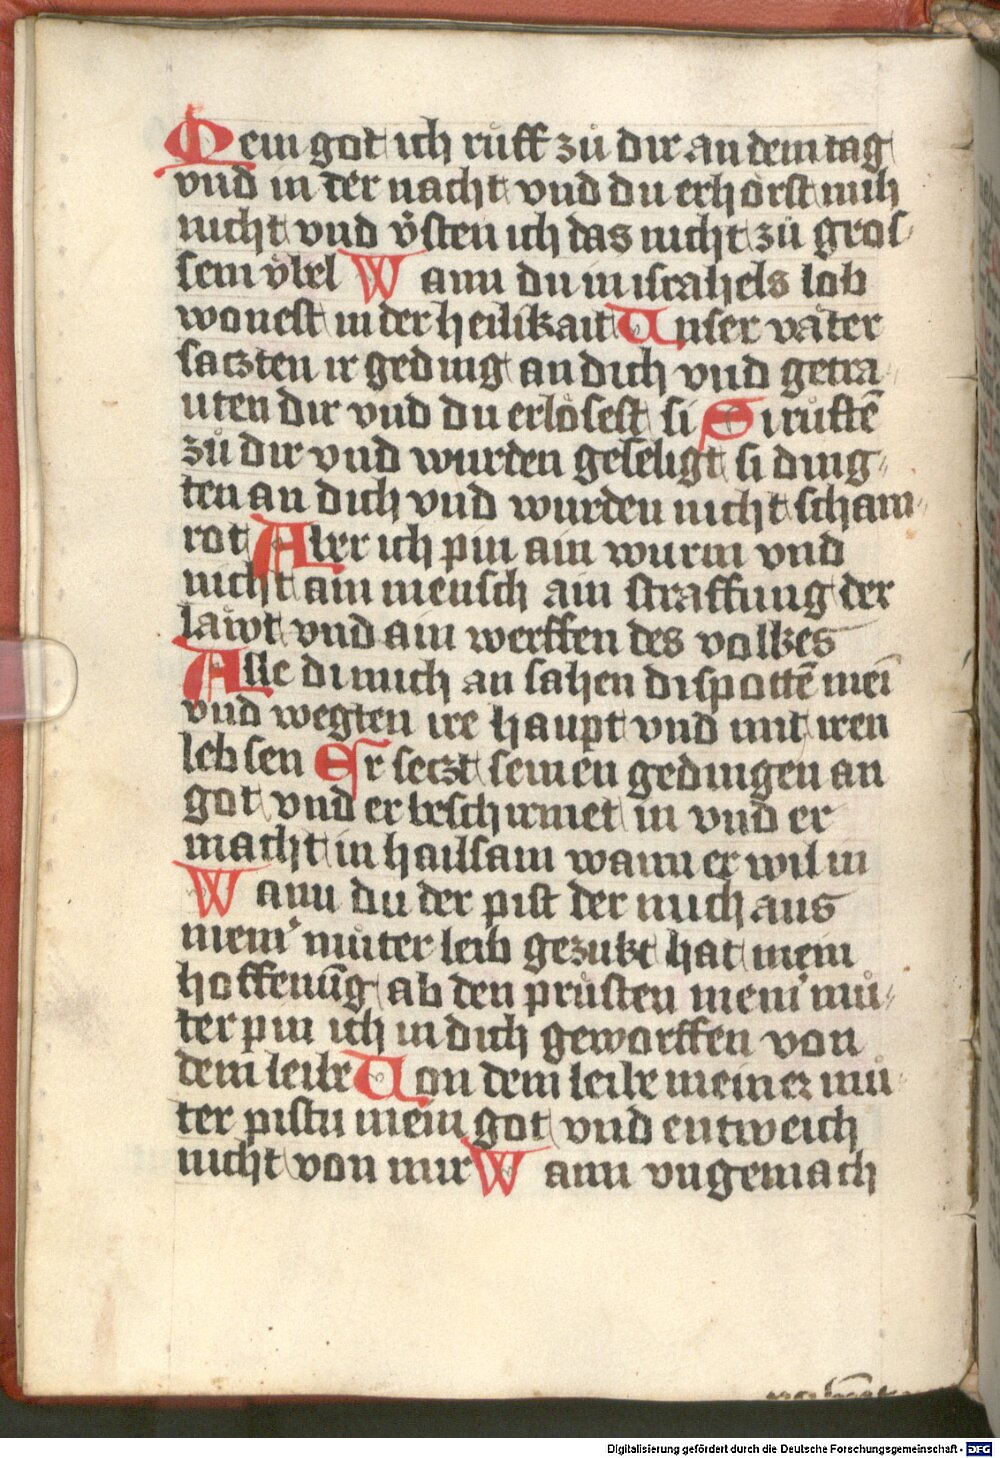 Mein got ich rüff zů dir an dem tag
vnd in der nacht vnd du erhorst mih
nicht vnd v̊sten ich das nicht zů gros
sem v̈bel Wann du in israhels lob
wonest in der heilikait Unser väter
saczten ir geding an dich vnd getra
uten dir vnd du erlösest si Si rüftē
zů dir vnd wurden geseligt si ding⸗
ten an dich vnd wurden nicht scham⸗
rot Aber ich pin ain wurm vnd
nicht ain mensch ain straffung der
läwt vnd ain werffen des volkes
Alle di mich an sahen di spottē mei
vnd wegten ire haupt vnd mit iren
lebsen Er seczt seinen gedingen an
got vnd er beschirmet in vnd er
macht in hailsam wann er wil in
Wann du der pist der mich aus
meinˀ můter leib gezukt hat mein
hoffenūg ab den prüsten meinˀ mů⸗
ter pin ich in dich geworffen von
dem leibe Uon dem leibe meiner mů⸗
ter pistu mein got vnd entweich
nicht von mir Wann vngemach
Digitalisierung gefördert durch die Deutsche Forschungsgemeinschaft - DFG